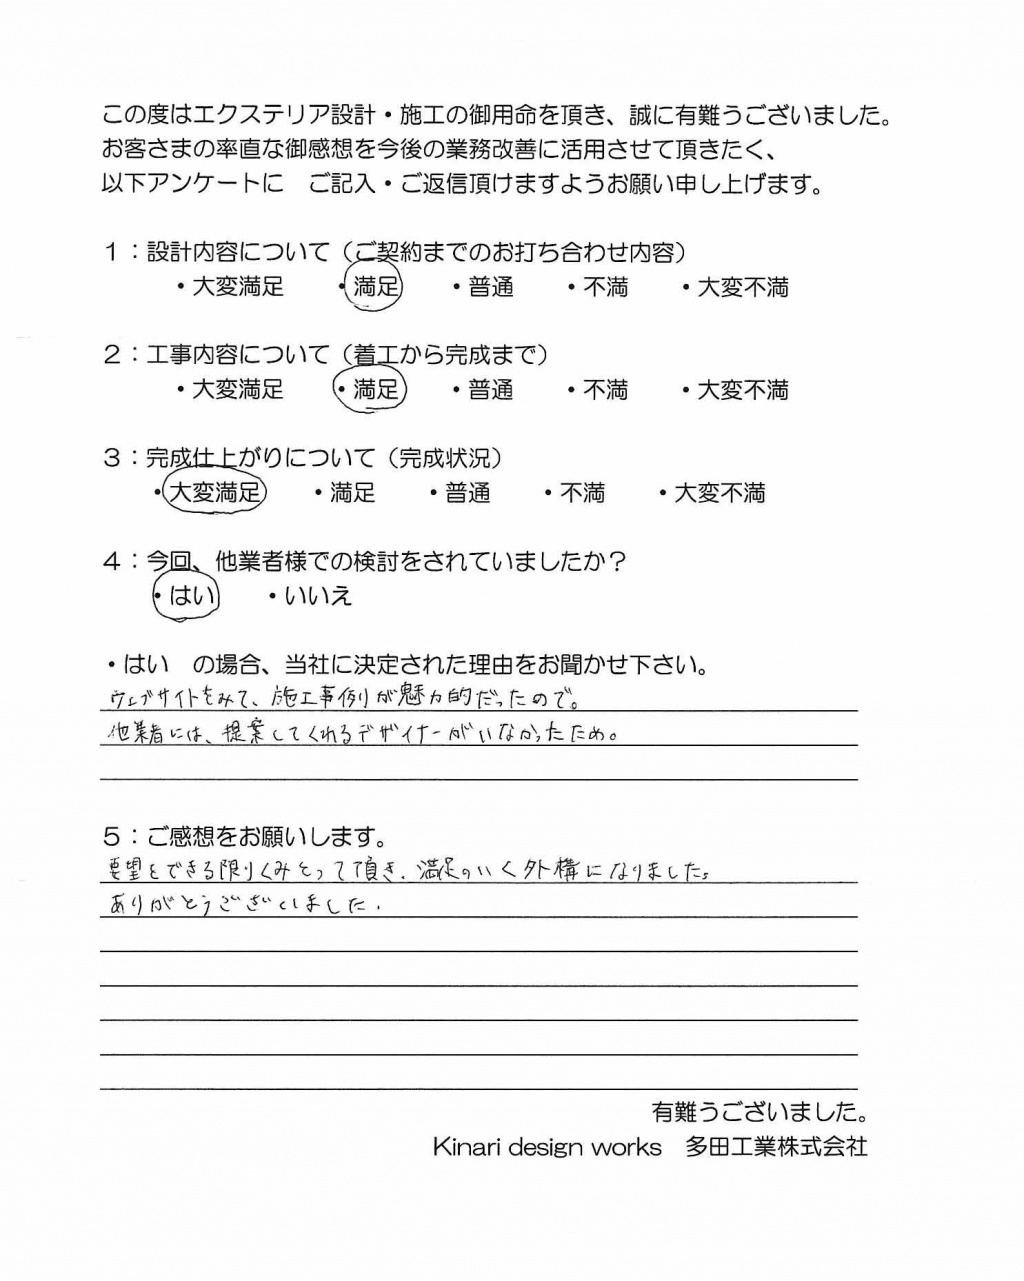 この度はエクステリア設計・施工の御用命を頂き、誠に有難うございました。
お客さまの率直な御感想を今後の業務改善に活用させて頂きたく、
以下アンケートに　ご記入・ご返信頂けますようお願い申し上げます。
１：設計内容について（ご契約までのお打ち合わせ内容）
・大変満足　・満足　・普通　・不満　・大変不満
２：工事内容について（着工から完成まで）
・大変満足　・満足　・普通　・不満　・大変不満
３：完成仕上がりについて（完成状況）
・大変満足　・満足　・普通　・不満　・大変不満
４：今回、他業者様での検討をされていましたか？
・はい　・いいえ
・はい　の場合、当社に決定された理由をお聞かせ下さい。
ウェブサイトをみて、施工事例が魅力的だったので。
他業者には、提案してくれるデザイナーがいなかったため。
５：ご感想をお願いします。
要望をできる限りくみとって頂き、満足のいく外構になりました。
ありがとうございました．
有難うございました。
Kinari design works　多田工業株式会社